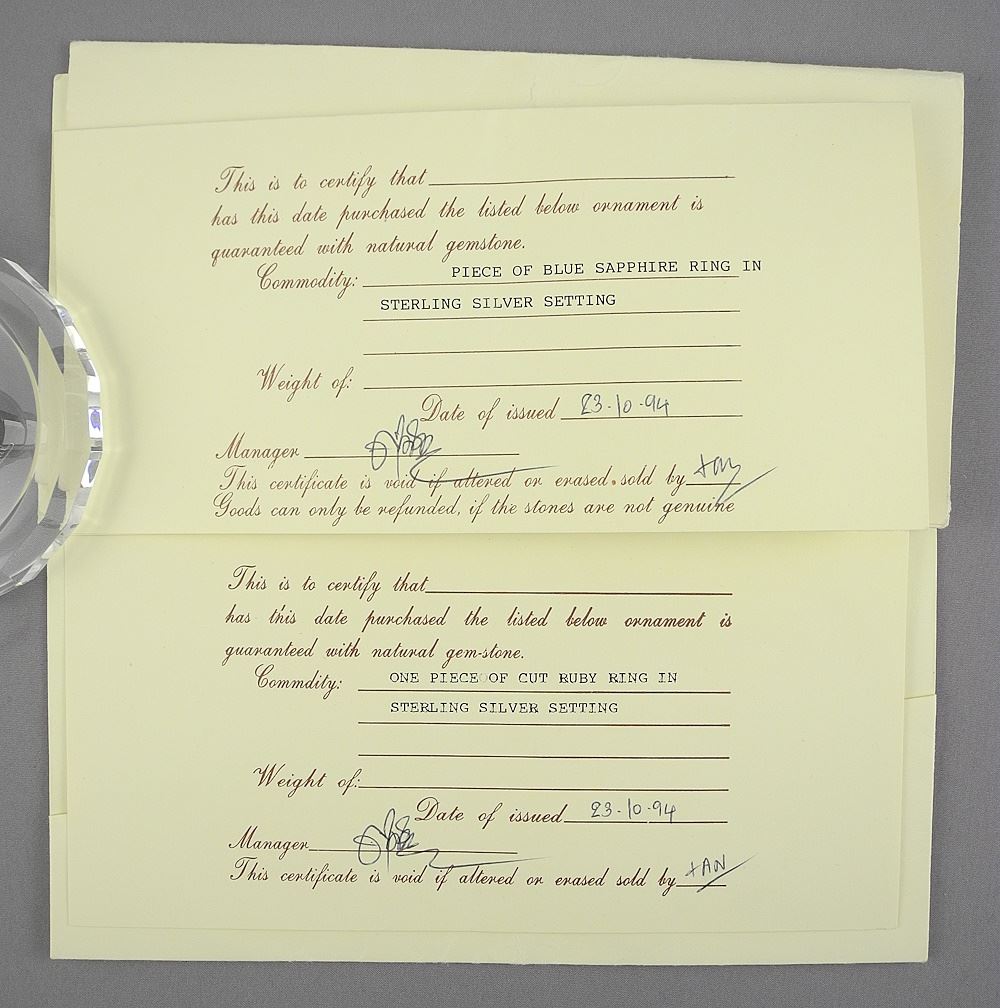 This is to certify that
has this date purchased the listed below ornament is
quaranteed with natural gemstone.
Commodity: PIECE OF BLUE SAPPHIRE RING IN
STERLING SILVER SETTING
Weight of:
Date of issued 23-10-94
Manager
This certificate is void if altered or erased. sold by tay
Goods can only be refunded, if the stones are not genuine
This is to certify that
has this date purchased the listed below ornament is
guaranteed with natural gem-stone.
Commdity: ONE PIECE OF CUT RUBY RING IN
STERLING SILVER SETTING
Weight of:
Date of issued 23-10-94
Manager
This certificate is void if altered or erased sold by tAN